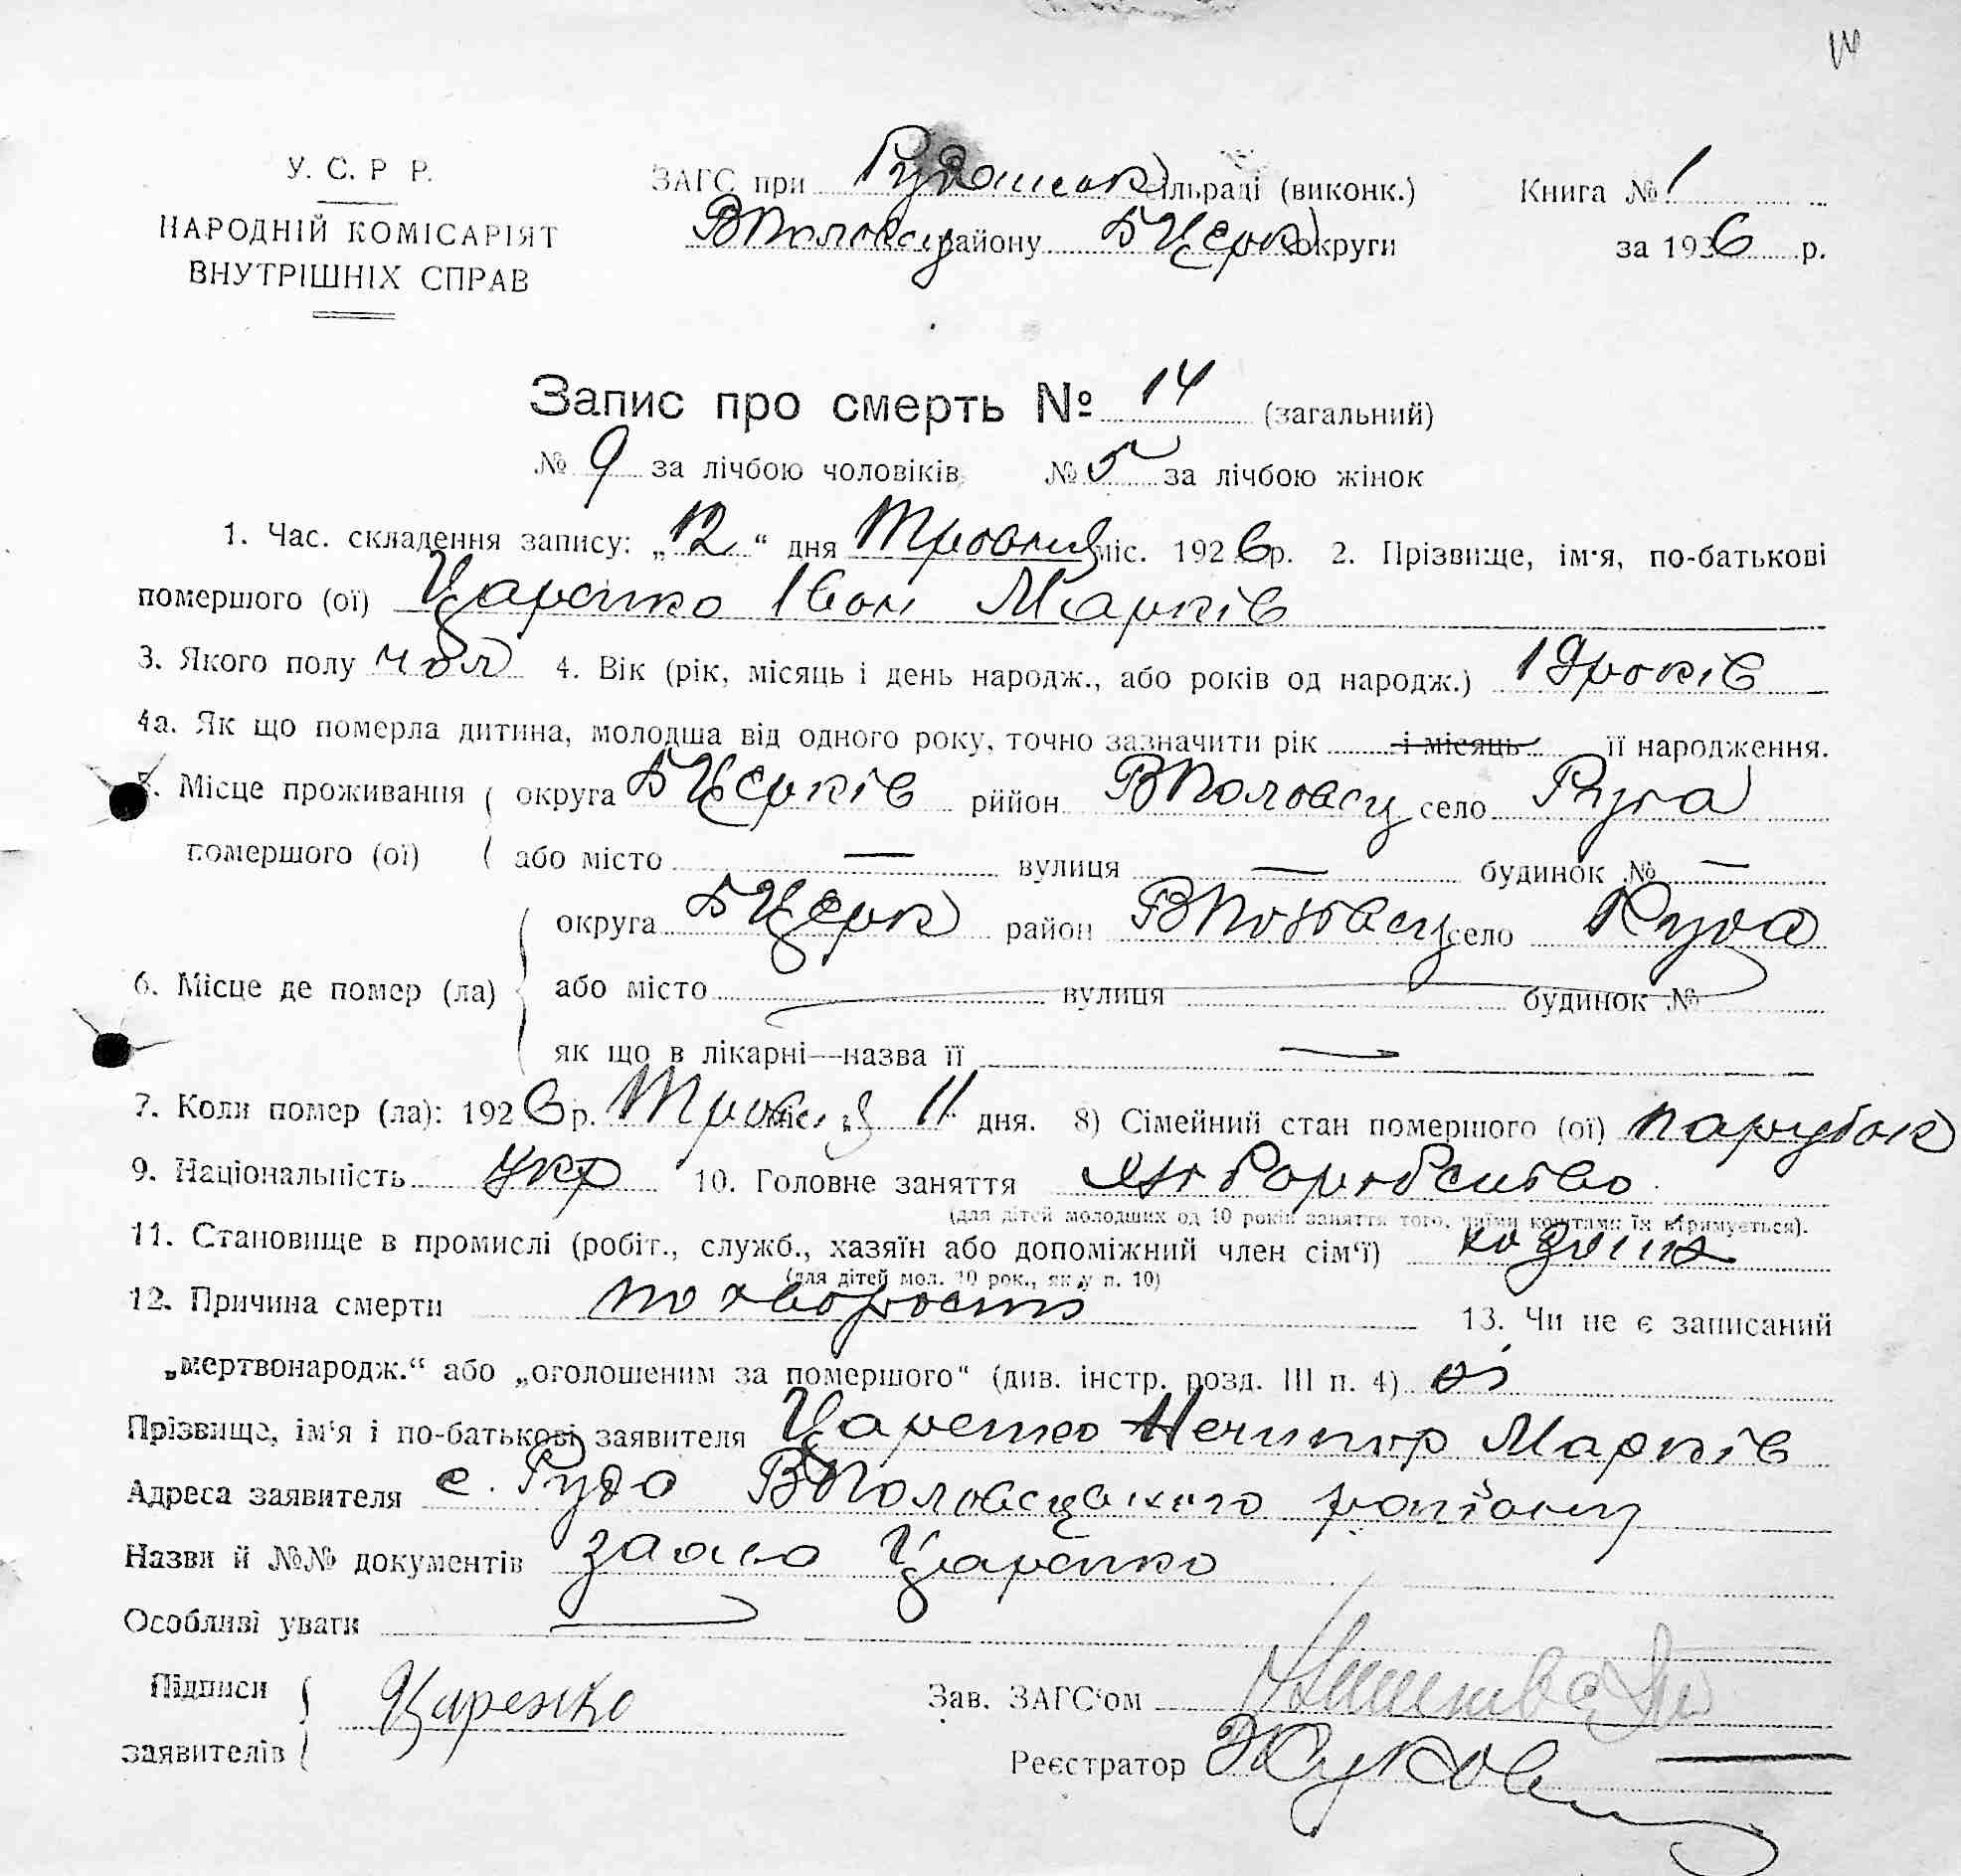 У. С. Р Р.
НАРОДНІЙ КОМІСАРІЯТ
ВНУТРІШНІХ СПРАВ
ЗАГС при Рудянськ сільраді (виконк.) Книга № 1
ВПоловец району БЦерк округи за 1926 р.
Запис про смерть № 14 (загальний)
№ 9 за лічбою чоловіків № 5 за лічбою жінок
1. Час. складення запису: „12“ дня Травня міс. 1926 р. 2. Прізвище, ім'я, по-батькові
помершого (ої) Царенко Іван Марків
3. Якого полу чол 4. Вік (рік, місяць і день народж., або років од народж.) 19 років
4а. Як що померла дитина, молодша від одного року, точно зазначити рік і місяць її народження.
5. Місце проживання округа БЦерків рййон ВПоловец село Руда
помершого (ої) або місто — вулиця — будинок № —
6. Місце де помер (ла) округа БЦерк район ВПоловец село Руда
або місто вулиця будинок №
як що в лікарні—назва її —
7. Коли помер (ла): 1926 р. Травня міс. 11 дня. 8) Сімейний стан помершого (ої) парубок
9. Національність Укр 10. Головне заняття хліборобство
(для дітей молодших од 10 років заняття того, чиїми коштами їх втримується).
11. Становище в промислі (робіт., служб., хазяїн або допоміжний член сім'ї)
(для дітей мол. 10 рок., як у п. 10)
12. Причина смерти по хворости 13. Чи не є записаний
„мертвонародж.“ або „оголошеним за помершого“ (див. інстр. розд. III п. 4) ні
Прізвище, ім'я і по-батькові заявителя Царенко Нечипор Марків
Адреса заявителя с. Руда ВПоловецького району
Назви й №№ документів заява Царенко
Особливі уваги —
Підписи заявителів Царенко Зав. ЗАГС'ом
Реєстратор Жуков